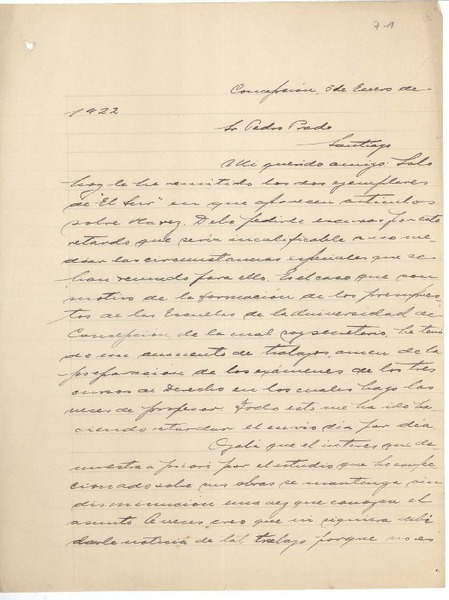 Concepción, 5 de Enero de
1922
Sr Pedro Prado
Santiago
Mi querido amigo: Solo
hoy le he remitido los dos ejemplares
de "El Sur" en que aparecen artículos
sobre Ud. Debo pedirle excusas por este
retardo que sería incalificable a no me-
diar las circunstancias especiales que se
han reunido para ello. Es el caso que con
motivo de la formación de los presupues
tos de las Escuelas de la Universidad de
Concepción, de la cual soy secretario, he teni
do un aumento de trabajos, amen de la
preparación de los exámenes de los tres
cursos de Derecho en los cuales hago las
veces de profesor. Todo esto me ha ido ha
ciendo retardar el envío día por día
Ojalá que el interes que de
muestra a priori por el estudio que he confec
cionado sobre sus obras se mantenga sin
disminucion una vez que conozca el
asunto. A veces creo que ni siquiera debí
darle noticia de tal trabajo porque no es